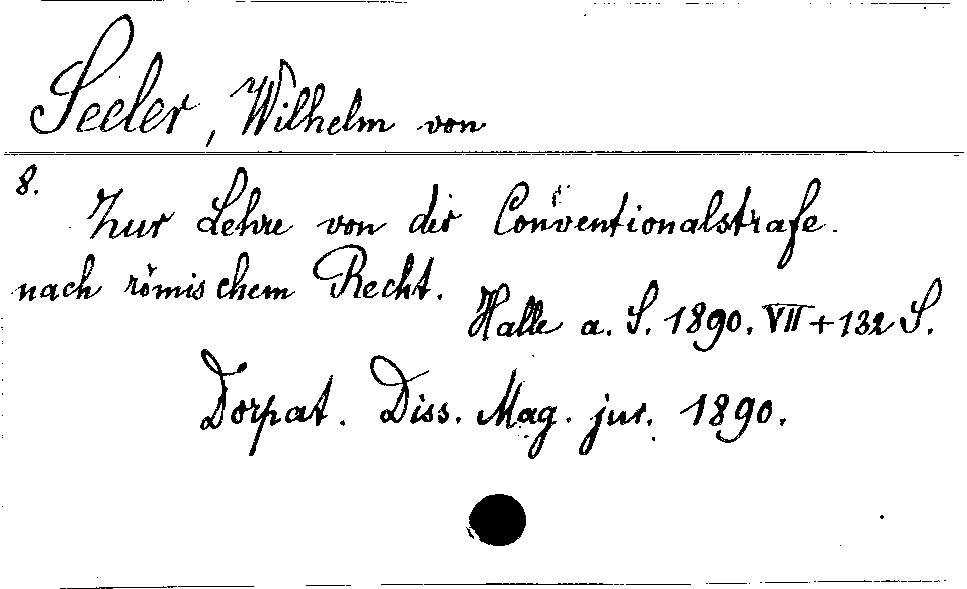 Seeler, Wilhelm von
8.
Zur Lehre von der Conventionalstrafe
nach römischem Recht.
Halle a. S. 1890. VII + 132 S.
Dorpat. Diss. Mag. jur. 1890.